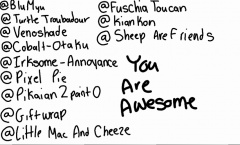 @BluMyu
@Turtle Troubadour
@Venoshade
@Cobalt-Otaku
@Irksome-Annoyance
@Pixel Pie
@Pikaian2point0
@Giftwrap
@Little Mac And Cheeze
@Fuschia Toucan
@KianKon
@Sheep Are Friends
You
Are
Awesome